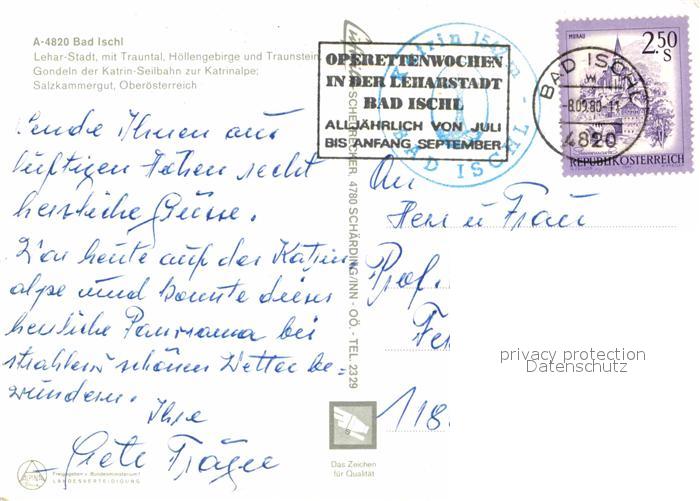 A-4820 Bad Ischl
Lehar-Stadt, mit Trauntal, Höllengebirge und Traunstein,
Gondeln der Katrin-Seilbahn zur Katrinalpe;
Salzkammergut, Oberösterreich
Sende Ihnen aus
luftigen Höhen recht
herzliche Grüsse.
War heute auf der Katrin
alpe und konnte dieses
herrliche Panorama bei
strahlend schönem Wetter be-
wundern.
Ihre
Grete
Freigegeben v. Bundesministerium f.
LANDESVERTEIDIGUNG
SCHERRICHER, 4780 SCHÄRDING/INN - OÖ. - TEL. 23 29
OPERETTENWOCHEN
IN DER LEHARSTADT
BAD ISCHL
ALLJÄHRLICH VON JULI
BIS ANFANG SEPTEMBER
Katrin 1542m
BAD ISCHL
BAD ISCHL
-8.09.80-11
4820
MURAU
2.50
S
REPUBLIK ÖSTERREICH
An
Herr u Frau
Prof.
118
privacy protection
Datenschutz
Das Zeichen
für Qualität